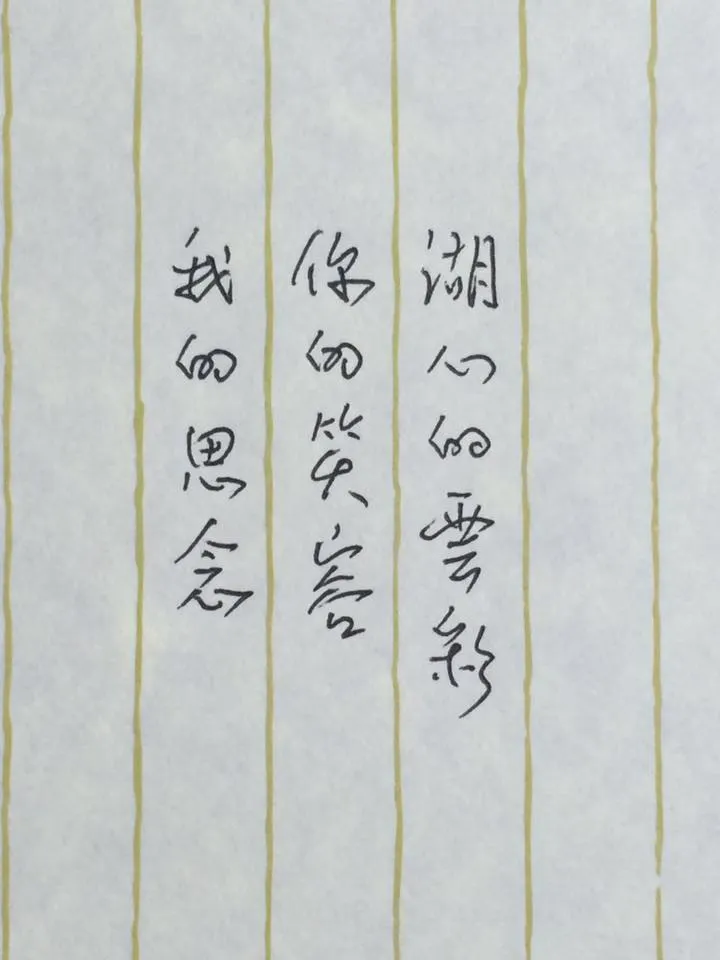 湖心的雲彩
你的笑容
我的思念